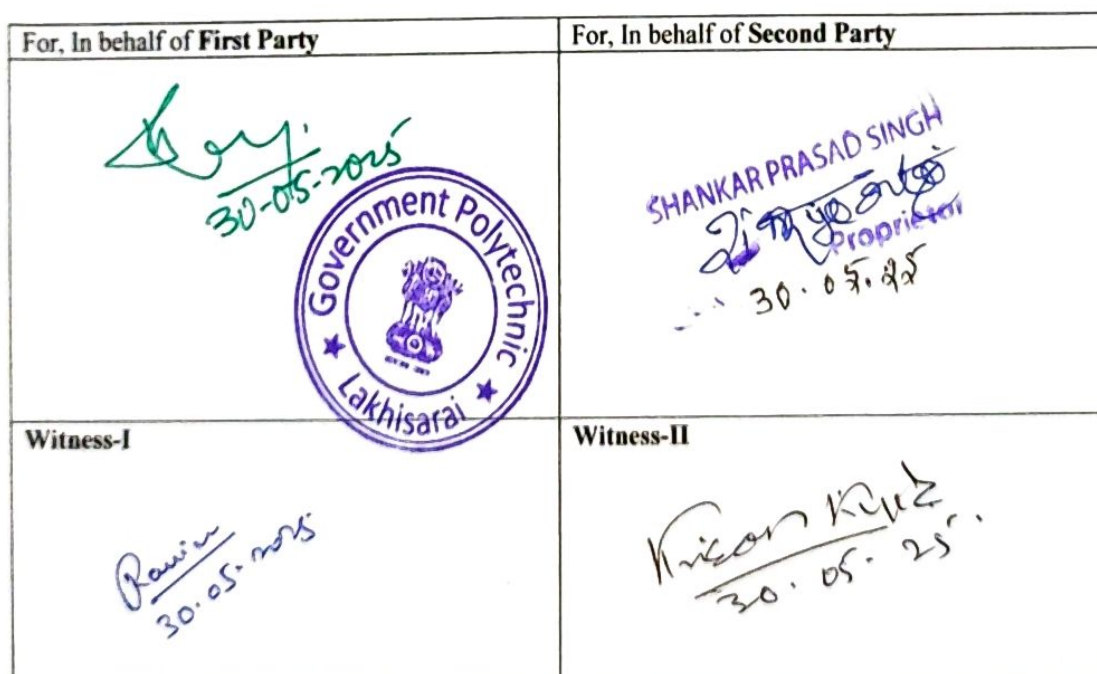 For, In behalf of First Party
For, In behalf of Second Party
30-05-2025
Government Polytechnic
Lakhisarai
SHANKAR PRASAD SINGH
Proprietor
30.05.25
Witness-I
Witness-II
30.05.2025
30.05.25